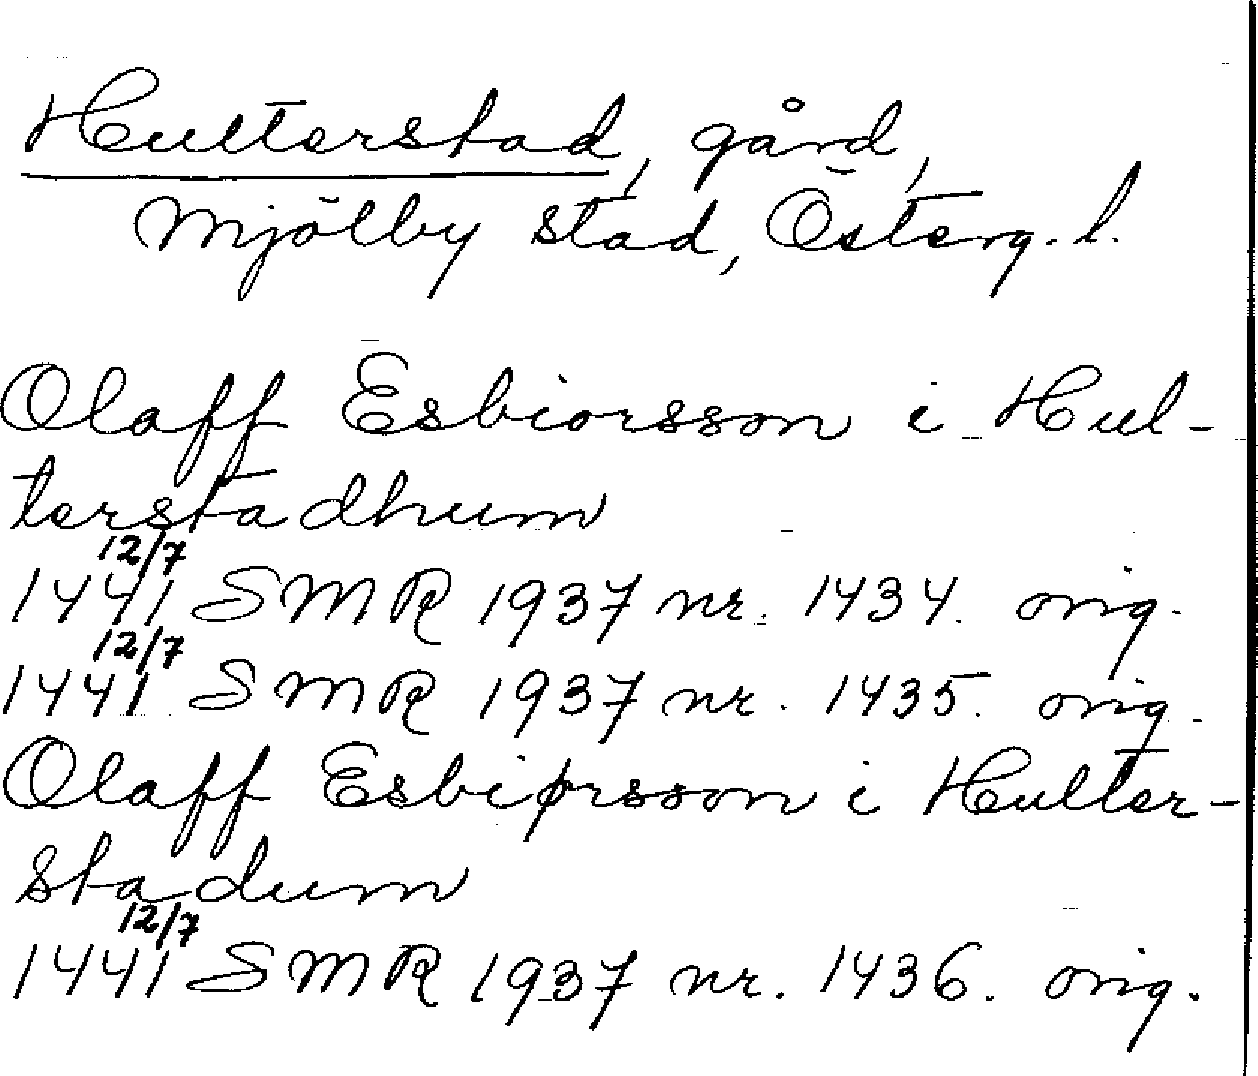 Hulterstad, gård,
Mjölby stad, Österg. l.
Olaff Esbiorsson i Hul-
terstadhum
12/7
1441 SMR 1937 nr. 1434. orig.
12/7
1441 SMR 1937 nr. 1435. orig.
Olaff Esbiørsson i Hulter-
stadum
12/7
1441 SMR 1937 nr. 1436. orig.